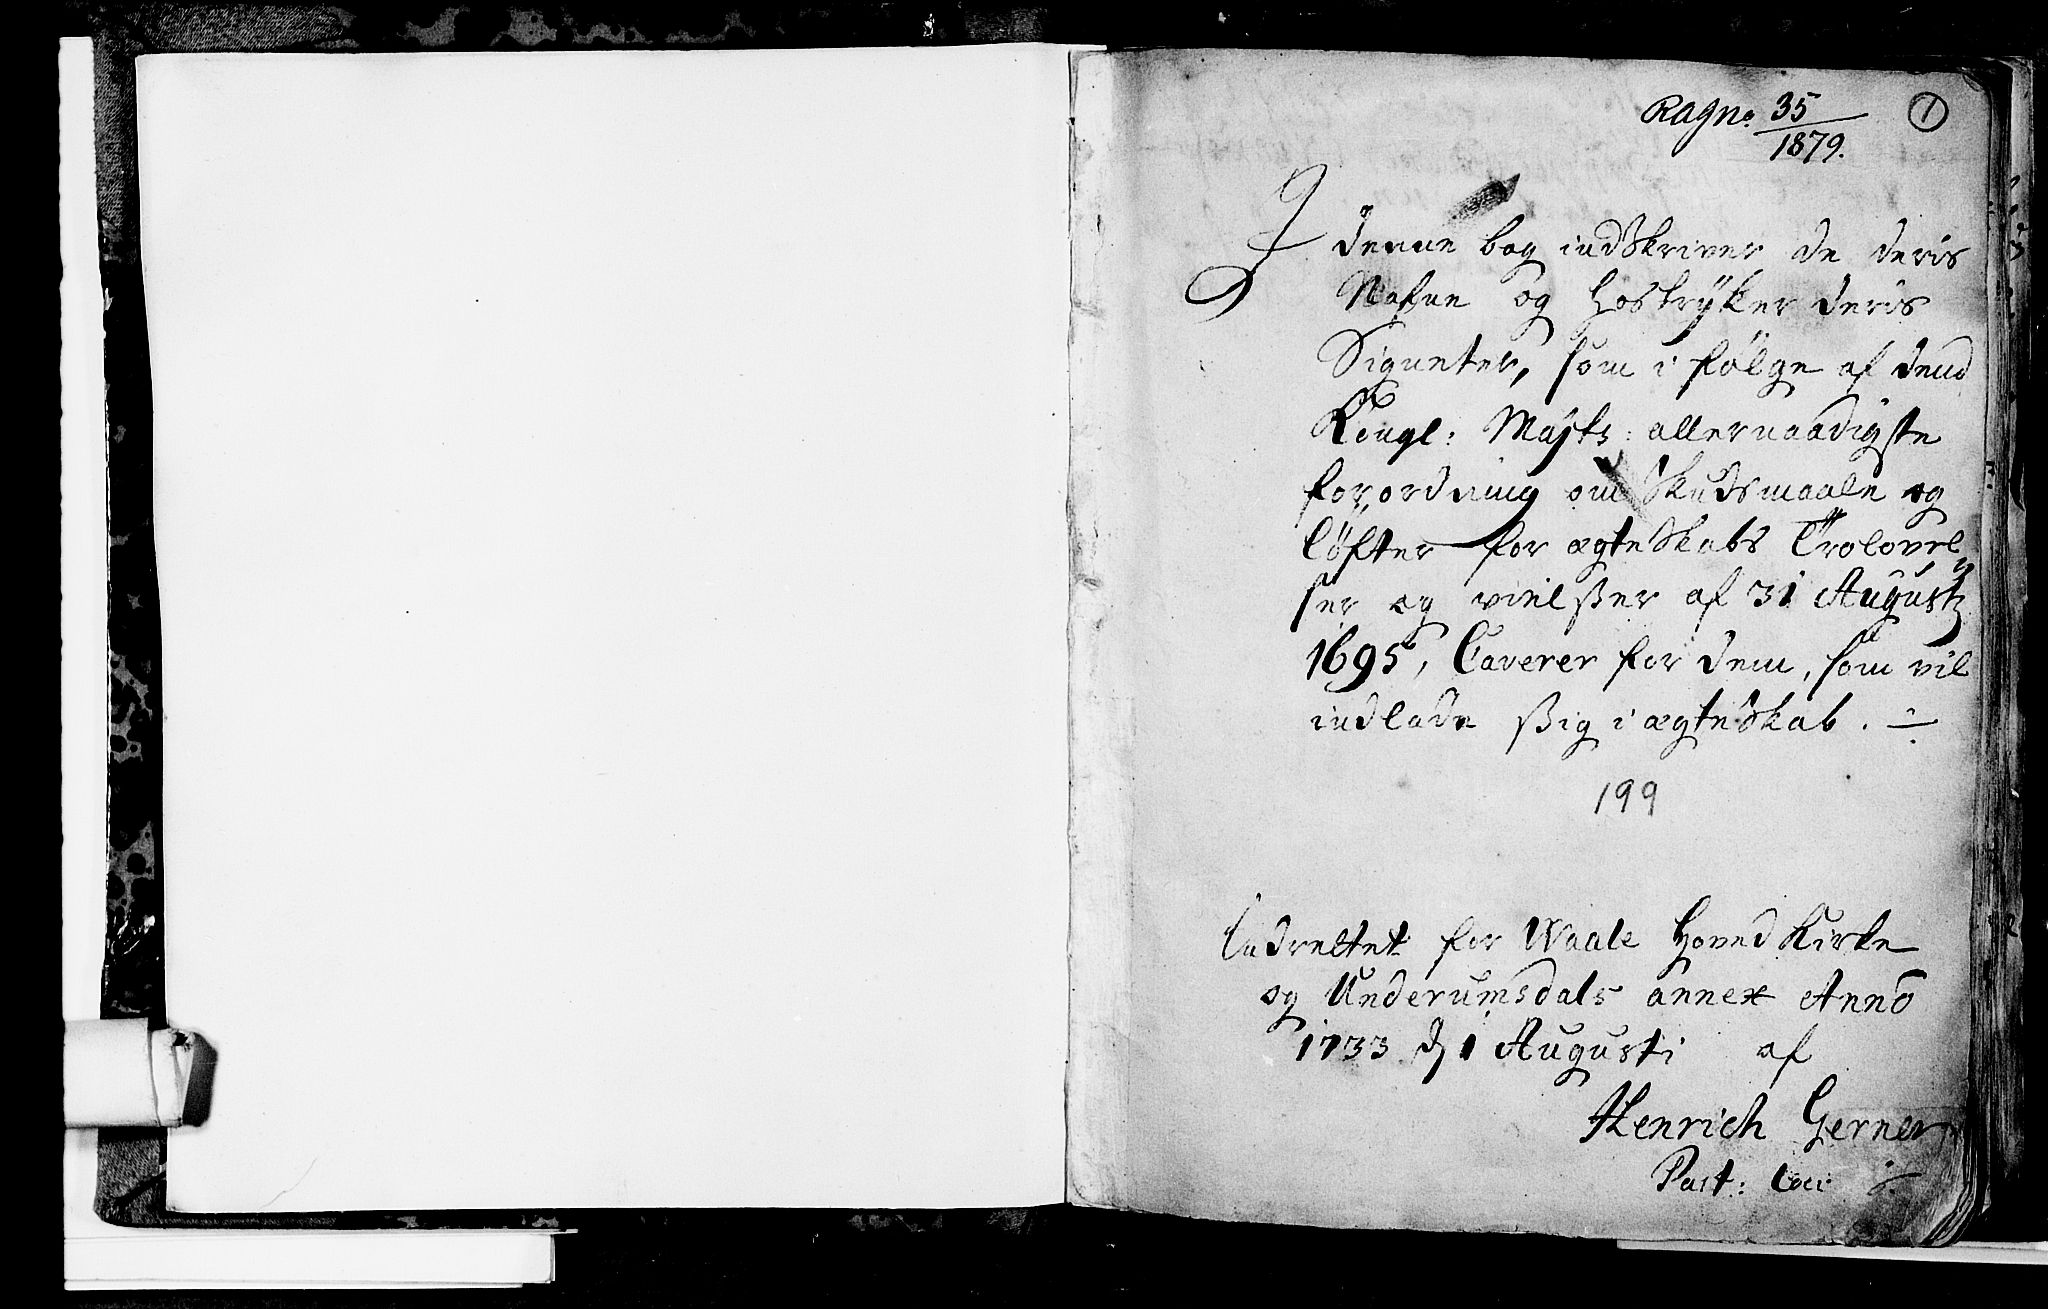 Ragno 35/1879.
1
I denne bog indskriver de deris
Nafne og hostrÿker deris
Signeter, som i følge af dend
Kongl: Maÿts: allernaadigste
forordning om Skudsmaale og
Løfter for ægteskabs Trolovel„
ser og vielsser af 31 Augustj
1695, Caverer for dem, som vil
indlade ssig i ægteskab. ÷
199
Indrettet for Waale Hoved Kirke
og Underumsdals annex Anno
1733 d 1 Augusti af
Henrich Gerner
Past: Loci